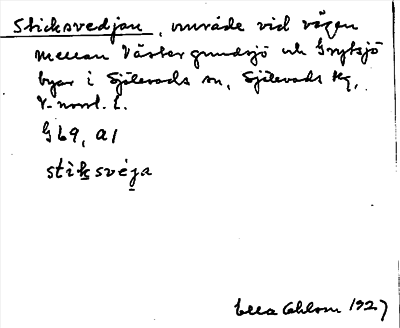 Sticksvedjan, område vid vägen
mellan Västergrundsjö och Grytsjö
byar i Själevads sn, Själevads tg,
V-norrl. l.
G 69, a1
stiksvéja
Ella Ohlson 1927